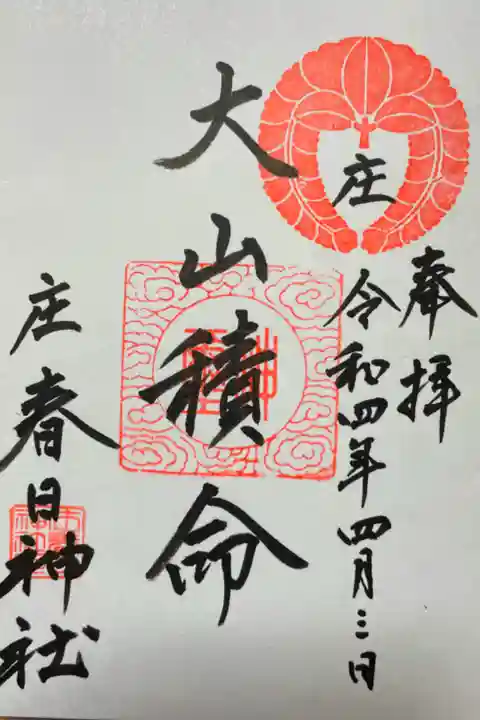 奉拝
庄
令和四年四月三日
大山積命
庄春日神社